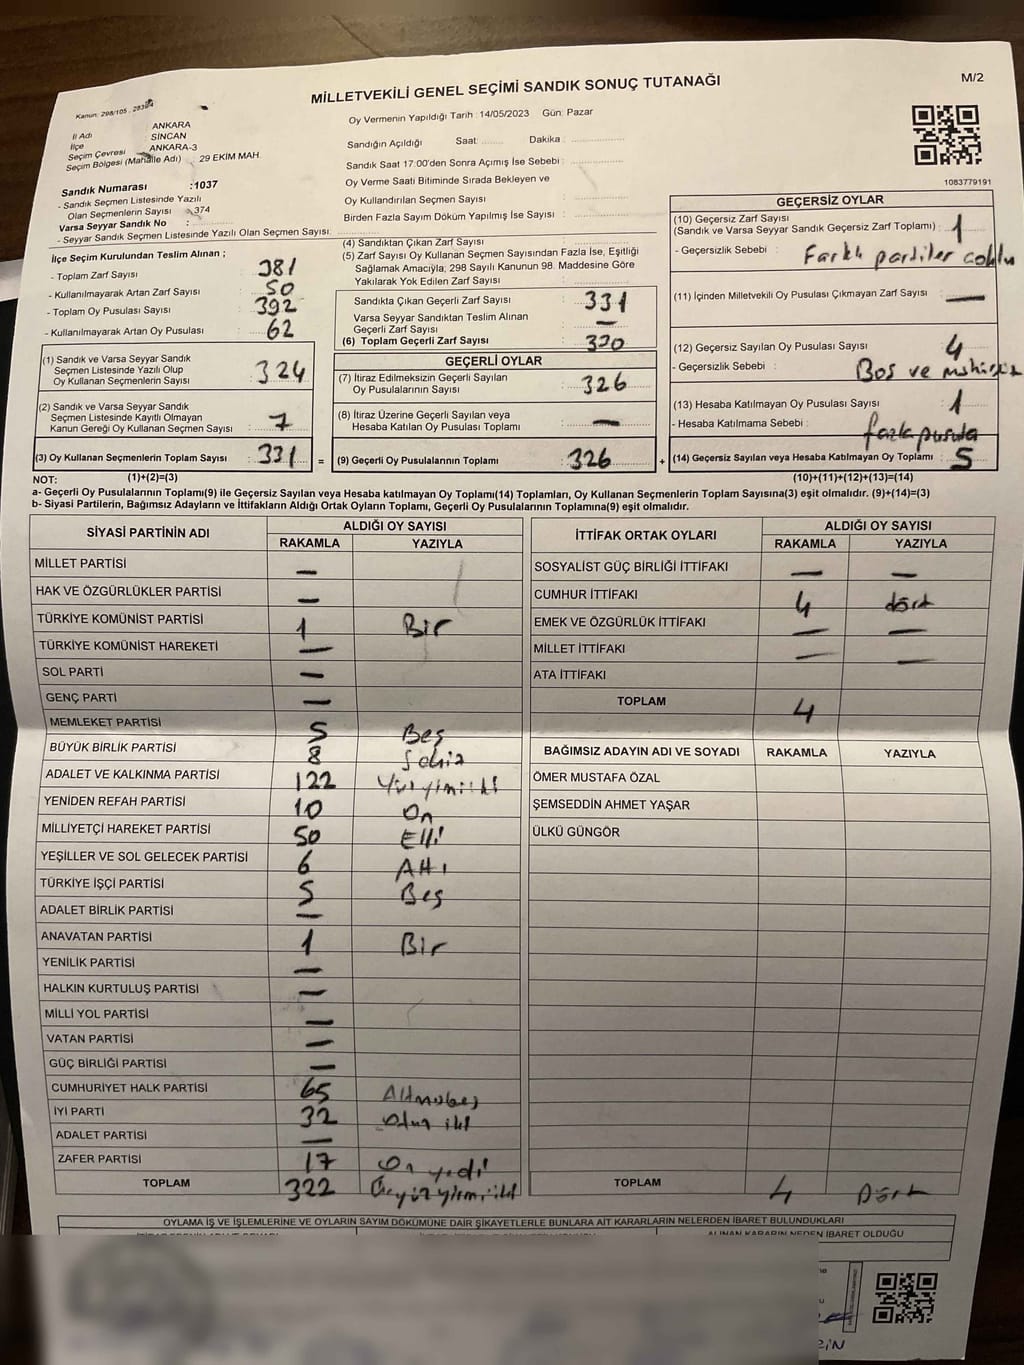 MİLLETVEKİLİ GENEL SEÇİMİ SANDIK SONUÇ TUTANAĞI
M/2
Kanun: 298/105
İl Adı ANKARA
İlçe SİNCAN
Seçim Çevresi ANKARA-3
Seçim Bölgesi (Mahalle Adı) 29 EKİM MAH.
Sandık Numarası :1037
- Sandık Seçmen Listesinde Yazılı
Olan Seçmenlerin Sayısı : 374
Varsa Seyyar Sandık No :
- Seyyar Sandık Seçmen Listesinde Yazılı Olan Seçmen Sayısı:
Oy Vermenin Yapıldığı Tarih : 14/05/2023 Gün: Pazar
Sandığın Açıldığı Saat: Dakika :
Sandık Saat 17:00'den Sonra Açımış İse Sebebi :
Oy Verme Saati Bitiminde Sırada Bekleyen ve
Oy Kullandırılan Seçmen Sayısı :
Birden Fazla Sayım Döküm Yapılmış İse Sayısı :
1083779191
İlçe Seçim Kurulundan Teslim Alınan ;
- Toplam Zarf Sayısı : 381
- Kullanılmayarak Artan Zarf Sayısı : 50
- Toplam Oy Pusulası Sayısı : 392
- Kullanılmayarak Artan Oy Pusulası : 62
(1) Sandık ve Varsa Seyyar Sandık
Seçmen Listesinde Yazılı Olup
Oy Kullanan Seçmenlerin Sayısı : 324
(2) Sandık ve Varsa Seyyar Sandık
Seçmen Listesinde Kayıtlı Olmayan
Kanun Gereği Oy Kullanan Seçmen Sayısı : 7
(3) Oy Kullanan Seçmenlerin Toplam Sayısı : 331 =
(4) Sandıktan Çıkan Zarf Sayısı :
(5) Zarf Sayısı Oy Kullanan Seçmen Sayısından Fazla İse, Eşitliği
Sağlamak Amacıyla; 298 Sayılı Kanunun 98. Maddesine Göre
Yakılarak Yok Edilen Zarf Sayısı :
Sandıkta Çıkan Geçerli Zarf Sayısı : 331
Varsa Seyyar Sandıktan Teslim Alınan
Geçerli Zarf Sayısı : —
(6) Toplam Geçerli Zarf Sayısı : 330
GEÇERLİ OYLAR
(7) İtiraz Edilmeksizin Geçerli Sayılan
Oy Pusulalarının Sayısı : 326
(8) İtiraz Üzerine Geçerli Sayılan veya
Hesaba Katılan Oy Pusulası Toplamı : —
(9) Geçerli Oy Pusulalarının Toplamı : 326 +
GEÇERSİZ OYLAR
(10) Geçersiz Zarf Sayısı
(Sandık ve Varsa Seyyar Sandık Geçersiz Zarf Toplamı) : 1
- Geçersizlik Sebebi : Farklı partiler
(11) İçinden Milletvekili Oy Pusulası Çıkmayan Zarf Sayısı : —
(12) Geçersiz Sayılan Oy Pusulası Sayısı : 4
- Geçersizlik Sebebi : Boş ve
(13) Hesaba Katılmayan Oy Pusulası Sayısı : 1
- Hesaba Katılmama Sebebi : fazla pusula
(14) Geçersiz Sayılan veya Hesaba Katılmayan Oy Toplamı : 5
NOT: (1)+(2)=(3) (10)+(11)+(12)+(13)=(14)
a- Geçerli Oy Pusulalarının Toplamı(9) ile Geçersiz Sayılan veya Hesaba katılmayan Oy Toplamı(14) Toplamları, Oy Kullanan Seçmenlerin Toplam Sayısına(3) eşit olmalıdır. (9)+(14)=(3)
b- Siyasi Partilerin, Bağımsız Adayların ve İttifakların Aldığı Ortak Oyların Toplamı, Geçerli Oy Pusulalarının Toplamına(9) eşit olmalıdır.
SİYASİ PARTİNİN ADI ALDIĞI OY SAYISI
RAKAMLA YAZIYLA
MİLLET PARTİSİ —
HAK VE ÖZGÜRLÜKLER PARTİSİ —
TÜRKİYE KOMÜNİST PARTİSİ 1 Bir
TÜRKİYE KOMÜNİST HAREKETİ —
SOL PARTİ —
GENÇ PARTİ —
MEMLEKET PARTİSİ 5 Beş
BÜYÜK BİRLİK PARTİSİ 8 Sekiz
ADALET VE KALKINMA PARTİSİ 122
YENİDEN REFAH PARTİSİ 10 On
MİLLİYETÇİ HAREKET PARTİSİ 50 Elli
YEŞİLLER VE SOL GELECEK PARTİSİ 6 Altı
TÜRKİYE İŞÇİ PARTİSİ 5 Beş
ADALET BİRLİK PARTİSİ —
ANAVATAN PARTİSİ 1 Bir
YENİLİK PARTİSİ —
HALKIN KURTULUŞ PARTİSİ —
MİLLİ YOL PARTİSİ —
VATAN PARTİSİ —
GÜÇ BİRLİĞİ PARTİSİ —
CUMHURİYET HALK PARTİSİ 65 Altmışbeş
İYİ PARTİ 32 otuz iki
ADALET PARTİSİ —
ZAFER PARTİSİ 17 On yedi
TOPLAM 322 Üçyüz yirmi iki
İTTİFAK ORTAK OYLARI ALDIĞI OY SAYISI
RAKAMLA YAZIYLA
SOSYALİST GÜÇ BİRLİĞİ İTTİFAKI — —
CUMHUR İTTİFAKI 4 dört
EMEK VE ÖZGÜRLÜK İTTİFAKI — —
MİLLET İTTİFAKI — —
ATA İTTİFAKI
TOPLAM 4
BAĞIMSIZ ADAYIN ADI VE SOYADI RAKAMLA YAZIYLA
ÖMER MUSTAFA ÖZAL
ŞEMSEDDİN AHMET YAŞAR
ÜLKÜ GÜNGÖR
TOPLAM 4 Dört
OYLAMA İŞ VE İŞLEMLERİNE VE OYLARIN SAYIM DÖKÜMÜNE DAİR ŞİKAYETLERLE BUNLARA AİT KARARLARIN NELERDEN İBARET BULUNDUKLARI
ALINAN KARARIN NEDEN İBARET OLDUĞU